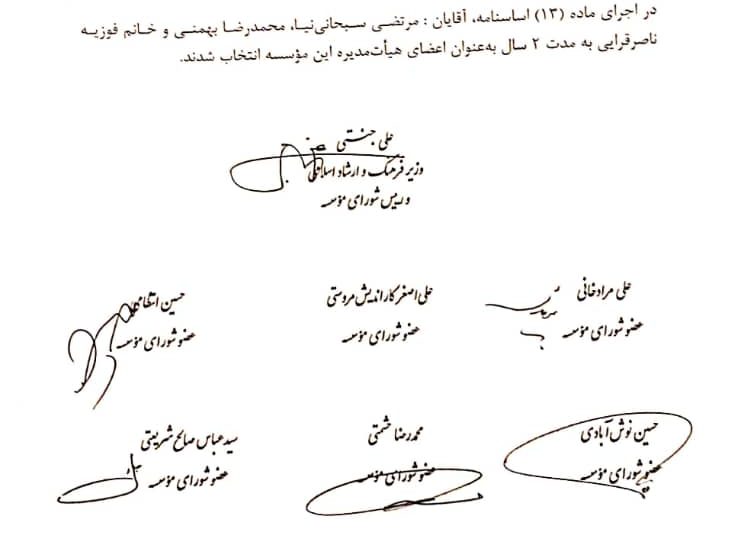 در اجرای ماده (۱۳) اساسنامه، آقایان : مرتضی سبحانی‌نیا، محمدرضا بهمنی و خانم فوزیه
ناصرقرایی به مدت ۲ سال به‌عنوان اعضای هیأت‌مدیره این مؤسسه انتخاب شدند.
علی جنتی
وزیر فرهنگ و ارشاد اسلامی
و رییس شورای مؤسسه
علی مرادخانی
عضو شورای مؤسسه
علی‌اصغر کاراندیش مروستی
عضو شورای مؤسسه
حسین انتظامی
عضو شورای مؤسسه
حسین نوش‌آبادی
عضو شورای مؤسسه
محمدرضا حشمتی
عضو شورای مؤسسه
سید عباس صالح شریعتی
عضو شورای مؤسسه